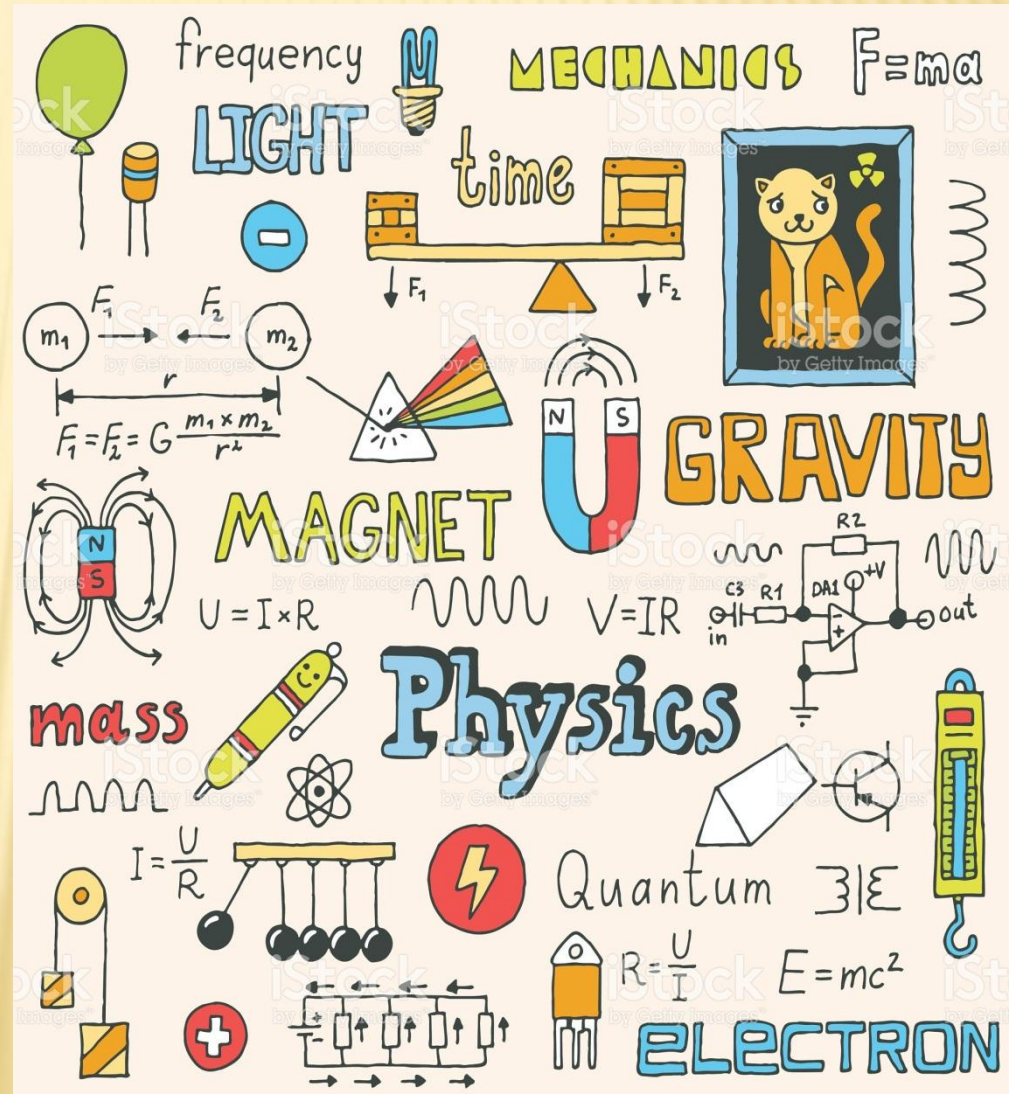 frequency
MECHANICS
F=ma
LIGHT
time
F₁
F₂
F₁
F₂
m₁
m₂
r
F₁=F₂=G m₁×m₂/r²
N
S
GRAVITY
N
S
MAGNET
R2
C3
R1
DA1
+V
in
out
U=I×R
V=IR
Physics
mass
I=U/R
Quantum
R=U/I
E=mc²
ELECTRON
iStock
by Getty Images™